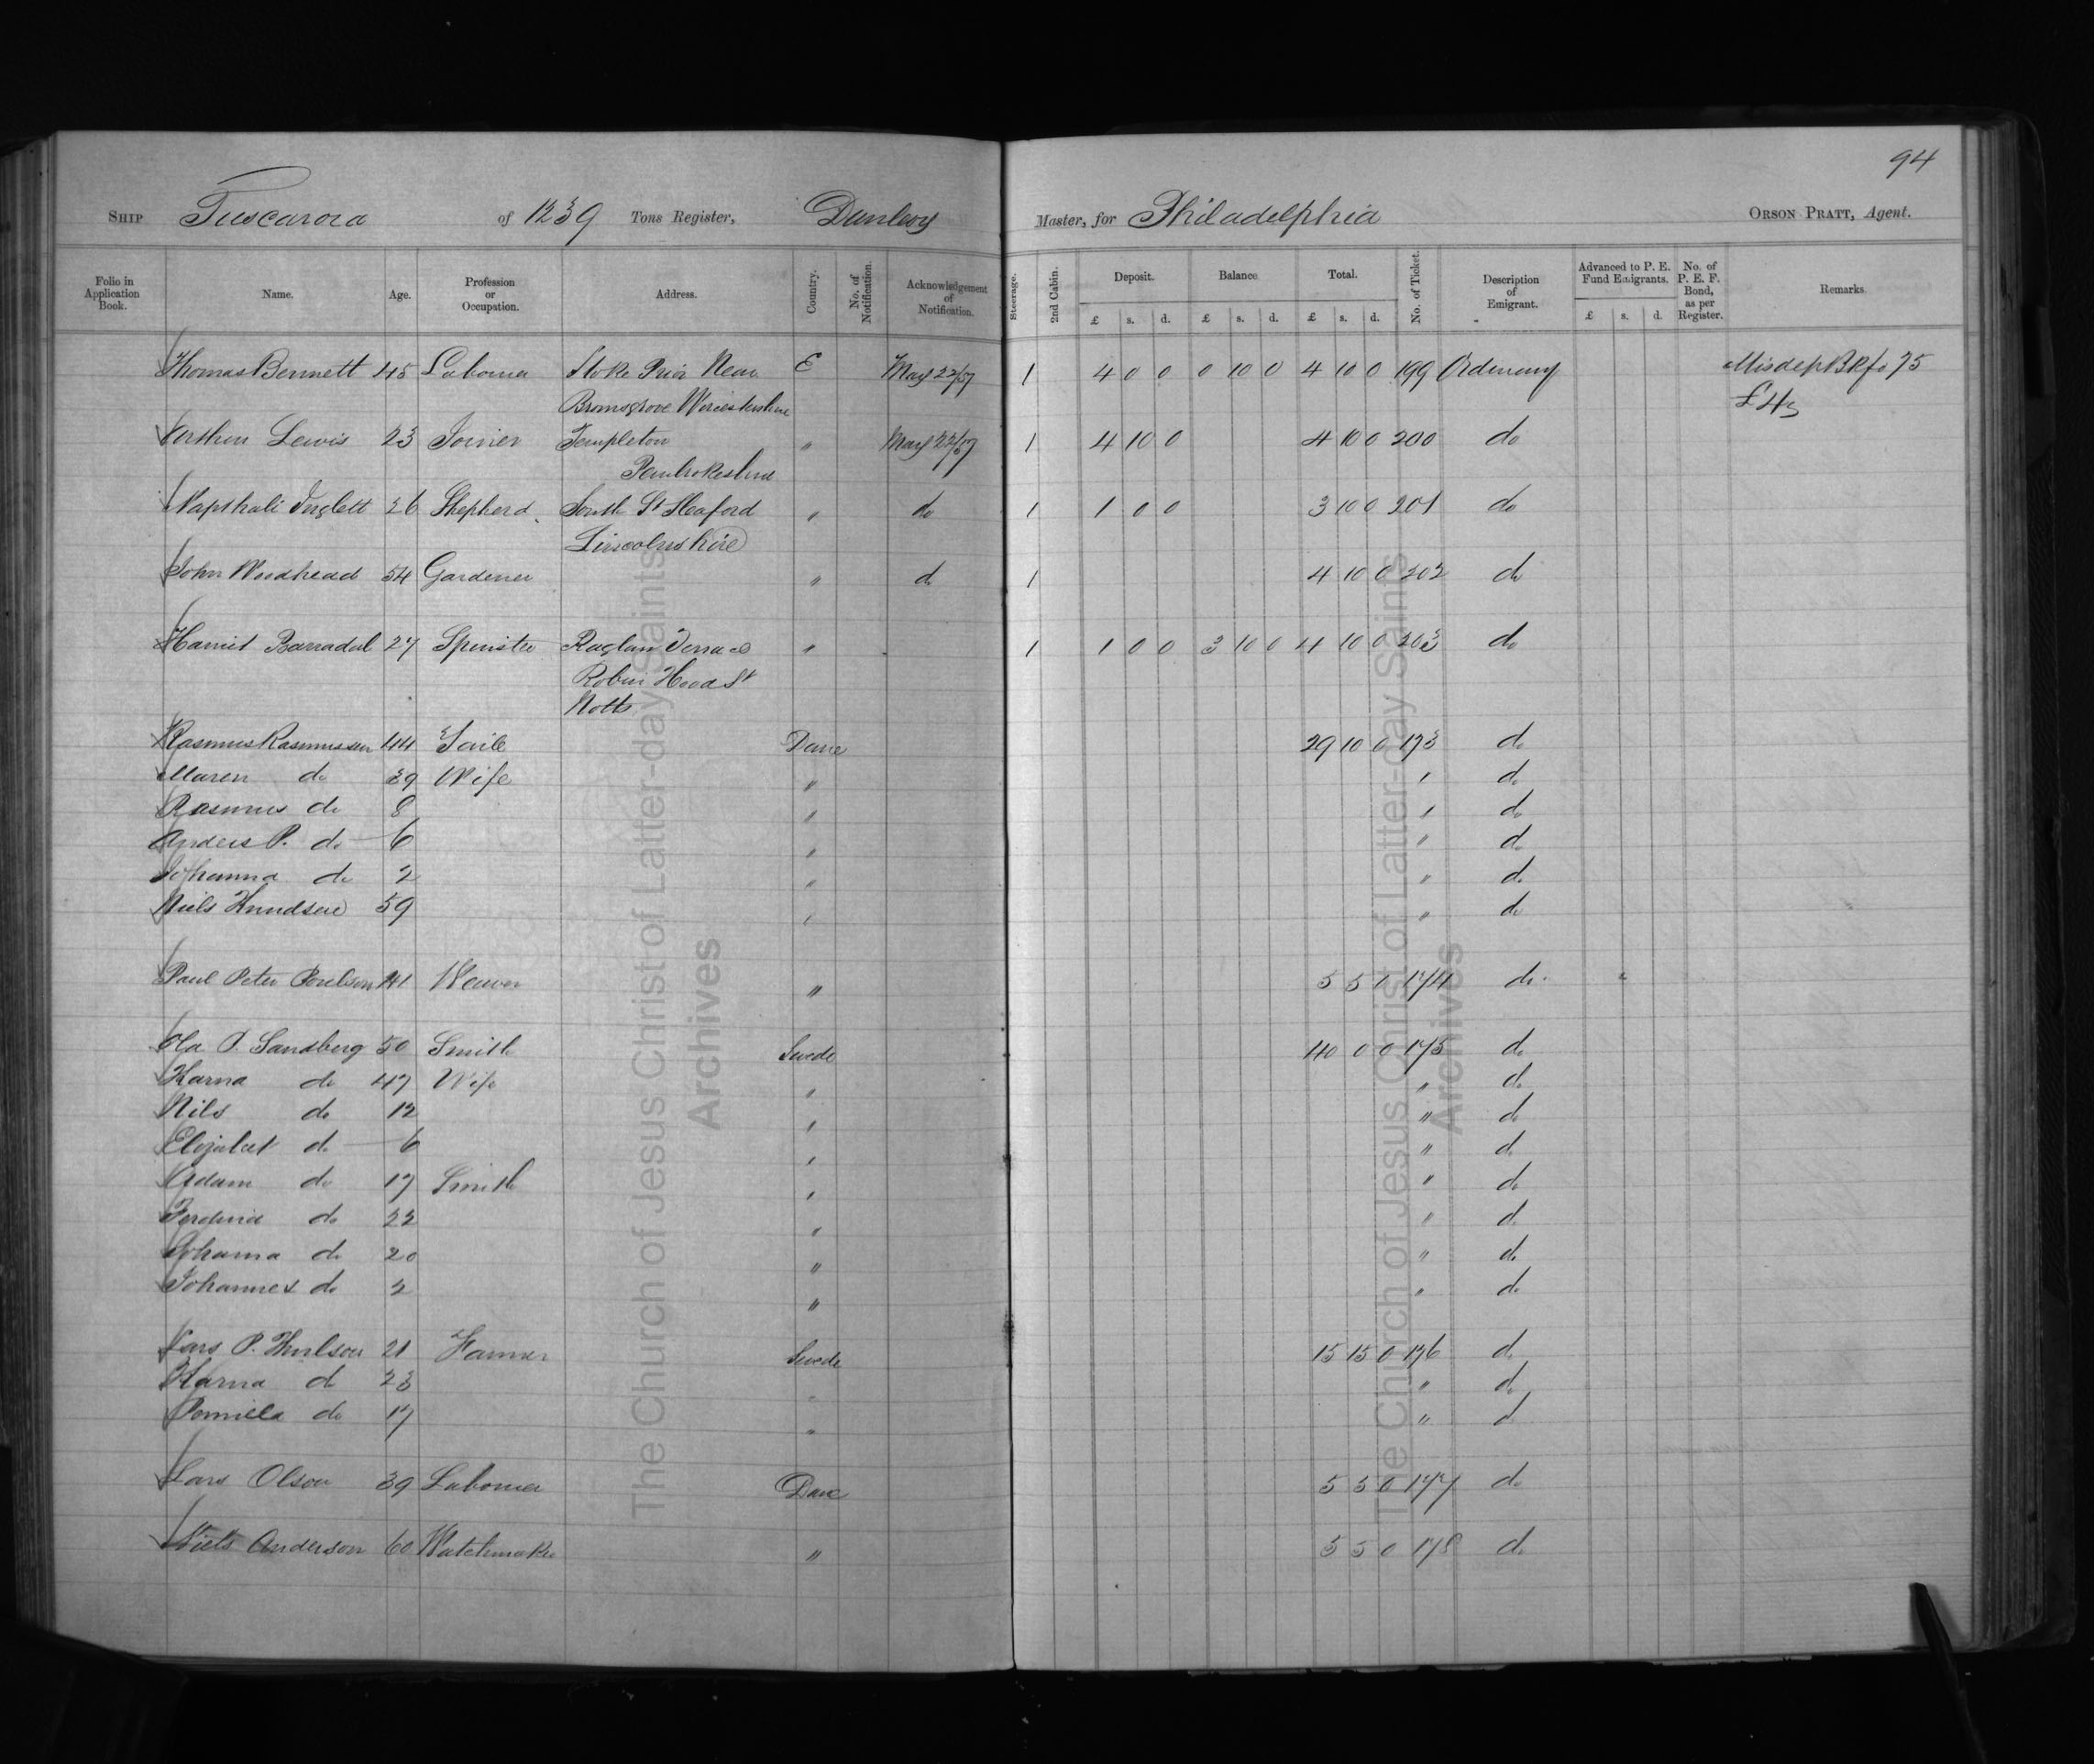 94
SHIP Tuscarora of 1239 Tons Register, Dunlevy Master, for Philadelphia ORSON PRATT, Agent.
Folio in Application Book. Name. Age. Profession or Occupation. Address. Country. No. of Notification. Acknowledgement of Notification. Steerage. 2nd Cabin. Deposit. Balance. Total. No. of Ticket. Description of Emigrant. Advanced to P. E. Fund Emigrants. No. of P. E. F. Bond, as per Register. Remarks.
£ s. d. £ s. d. £ s. d. £ s. d.
Thomas Bennett 45 Laborer Stoke Prior Near E May 22/57 1 4 0 0 0 10 0 4 10 0 199 Ordinary
Bromsgrove Worcestershire £4
Arthur Lewis 23 Joiner Templeton " May 22/57 1 4 10 0 4 10 0 200 do
Pembrokeshire
Napthali Inglett 26 Shepherd South St Sleaford " do 1 1 0 0 3 10 0 201 do
Lincolnshire
John Woodhead 54 Gardener " do 1 4 10 0 202 do
Harriet Barradal 27 Spinster Raglan Terrace " 1 1 0 0 3 10 0 4 10 0 203 do
Robin Hood St
Notts
Rasmus Rasmussen 44 Dane 29 10 0 173 do
Maren do 39 Wife " " do
Rasmus do 8 " " do
Anders P. do 6 " " do
Johanna do 2 " " do
Niels Knudsen 59 " " do
Paul Peter Poulson 41 Weaver " 5 5 0 174 do
Ola P. Sandberg 50 Smith Swede 40 0 0 175 do
Karna do 47 Wife " " do
Nils do 12 " " do
Elizabet do 6 " " do
Adam do 17 Smith " " do
do 22 " " do
Johanna do 20 " " do
Johannes do 2 " " do
Lars P. 21 Farmer Swede 15 15 0 176 do
Karna do 23 " " do
Pernilla do 17 " " do
Lars Olson 39 Laborer Dane 5 5 0 177 do
Niels Anderson 60 Watchmaker " 5 5 0 178 do
The Church of Jesus Christ of Latter-day Saints
Archives
The Church of Jesus Christ of Latter-day Saints
Archives